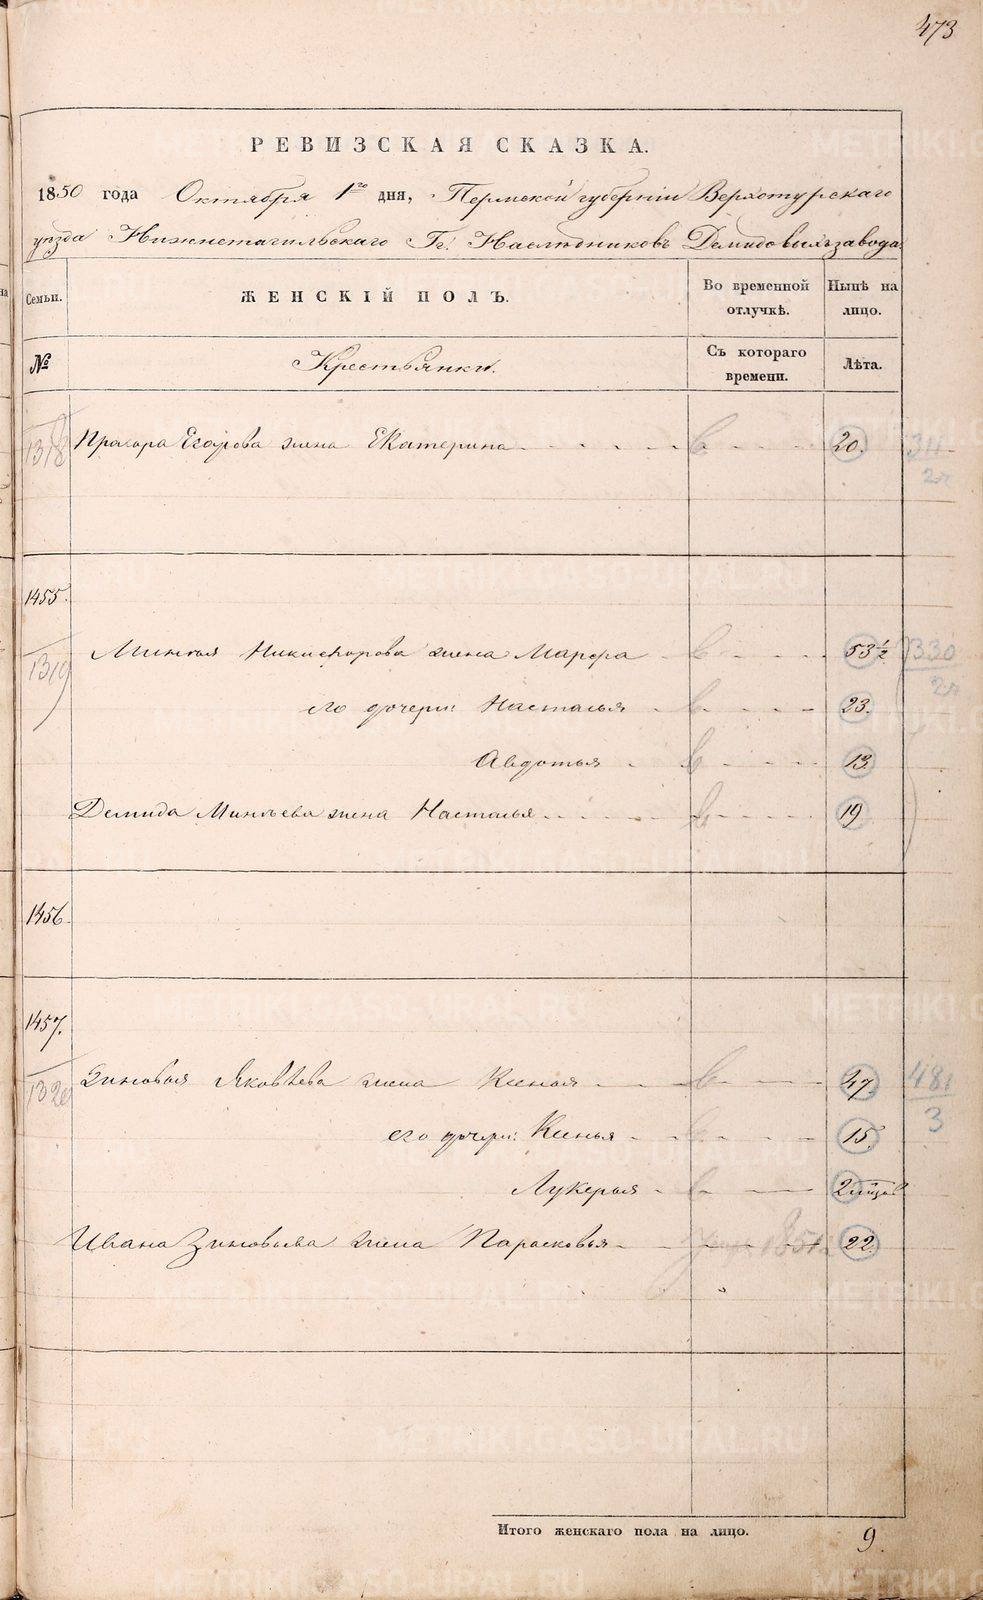 473
РЕВИЗСКАЯ СКАЗКА.
1850 года Октября 1го дня, Пермской губернiи Верхотурскаго
уѣзда Нижнетагильскаго Гг. Наслѣдниковъ Демидовыхъ завода
Семьи. ЖЕНСКIЙ ПОЛЪ. Во временной отлучкѣ. Нынѣ на лицо.
№ Крестьянки. Съ котораго времени. Лѣта.
1318 Прохора Егорова жена Екатерина 20.
1455.
1319 Минѣя Никифорова жена Марфа 53½ 1330
его дочери: Насталья 23.
Авдотья 13.
Демида Минѣева жена Насталья 19
1456.
1457.
1320 Зиновья Яковлева жена Ксенья 47. 481
3
его дочери: Ксенья 15.
Лукерья
Ивана Зиновьева жена Парасковья 1851 22.
Итого женскаго пола на лицо. 9.
METRIKI.GASO-URAL.RU